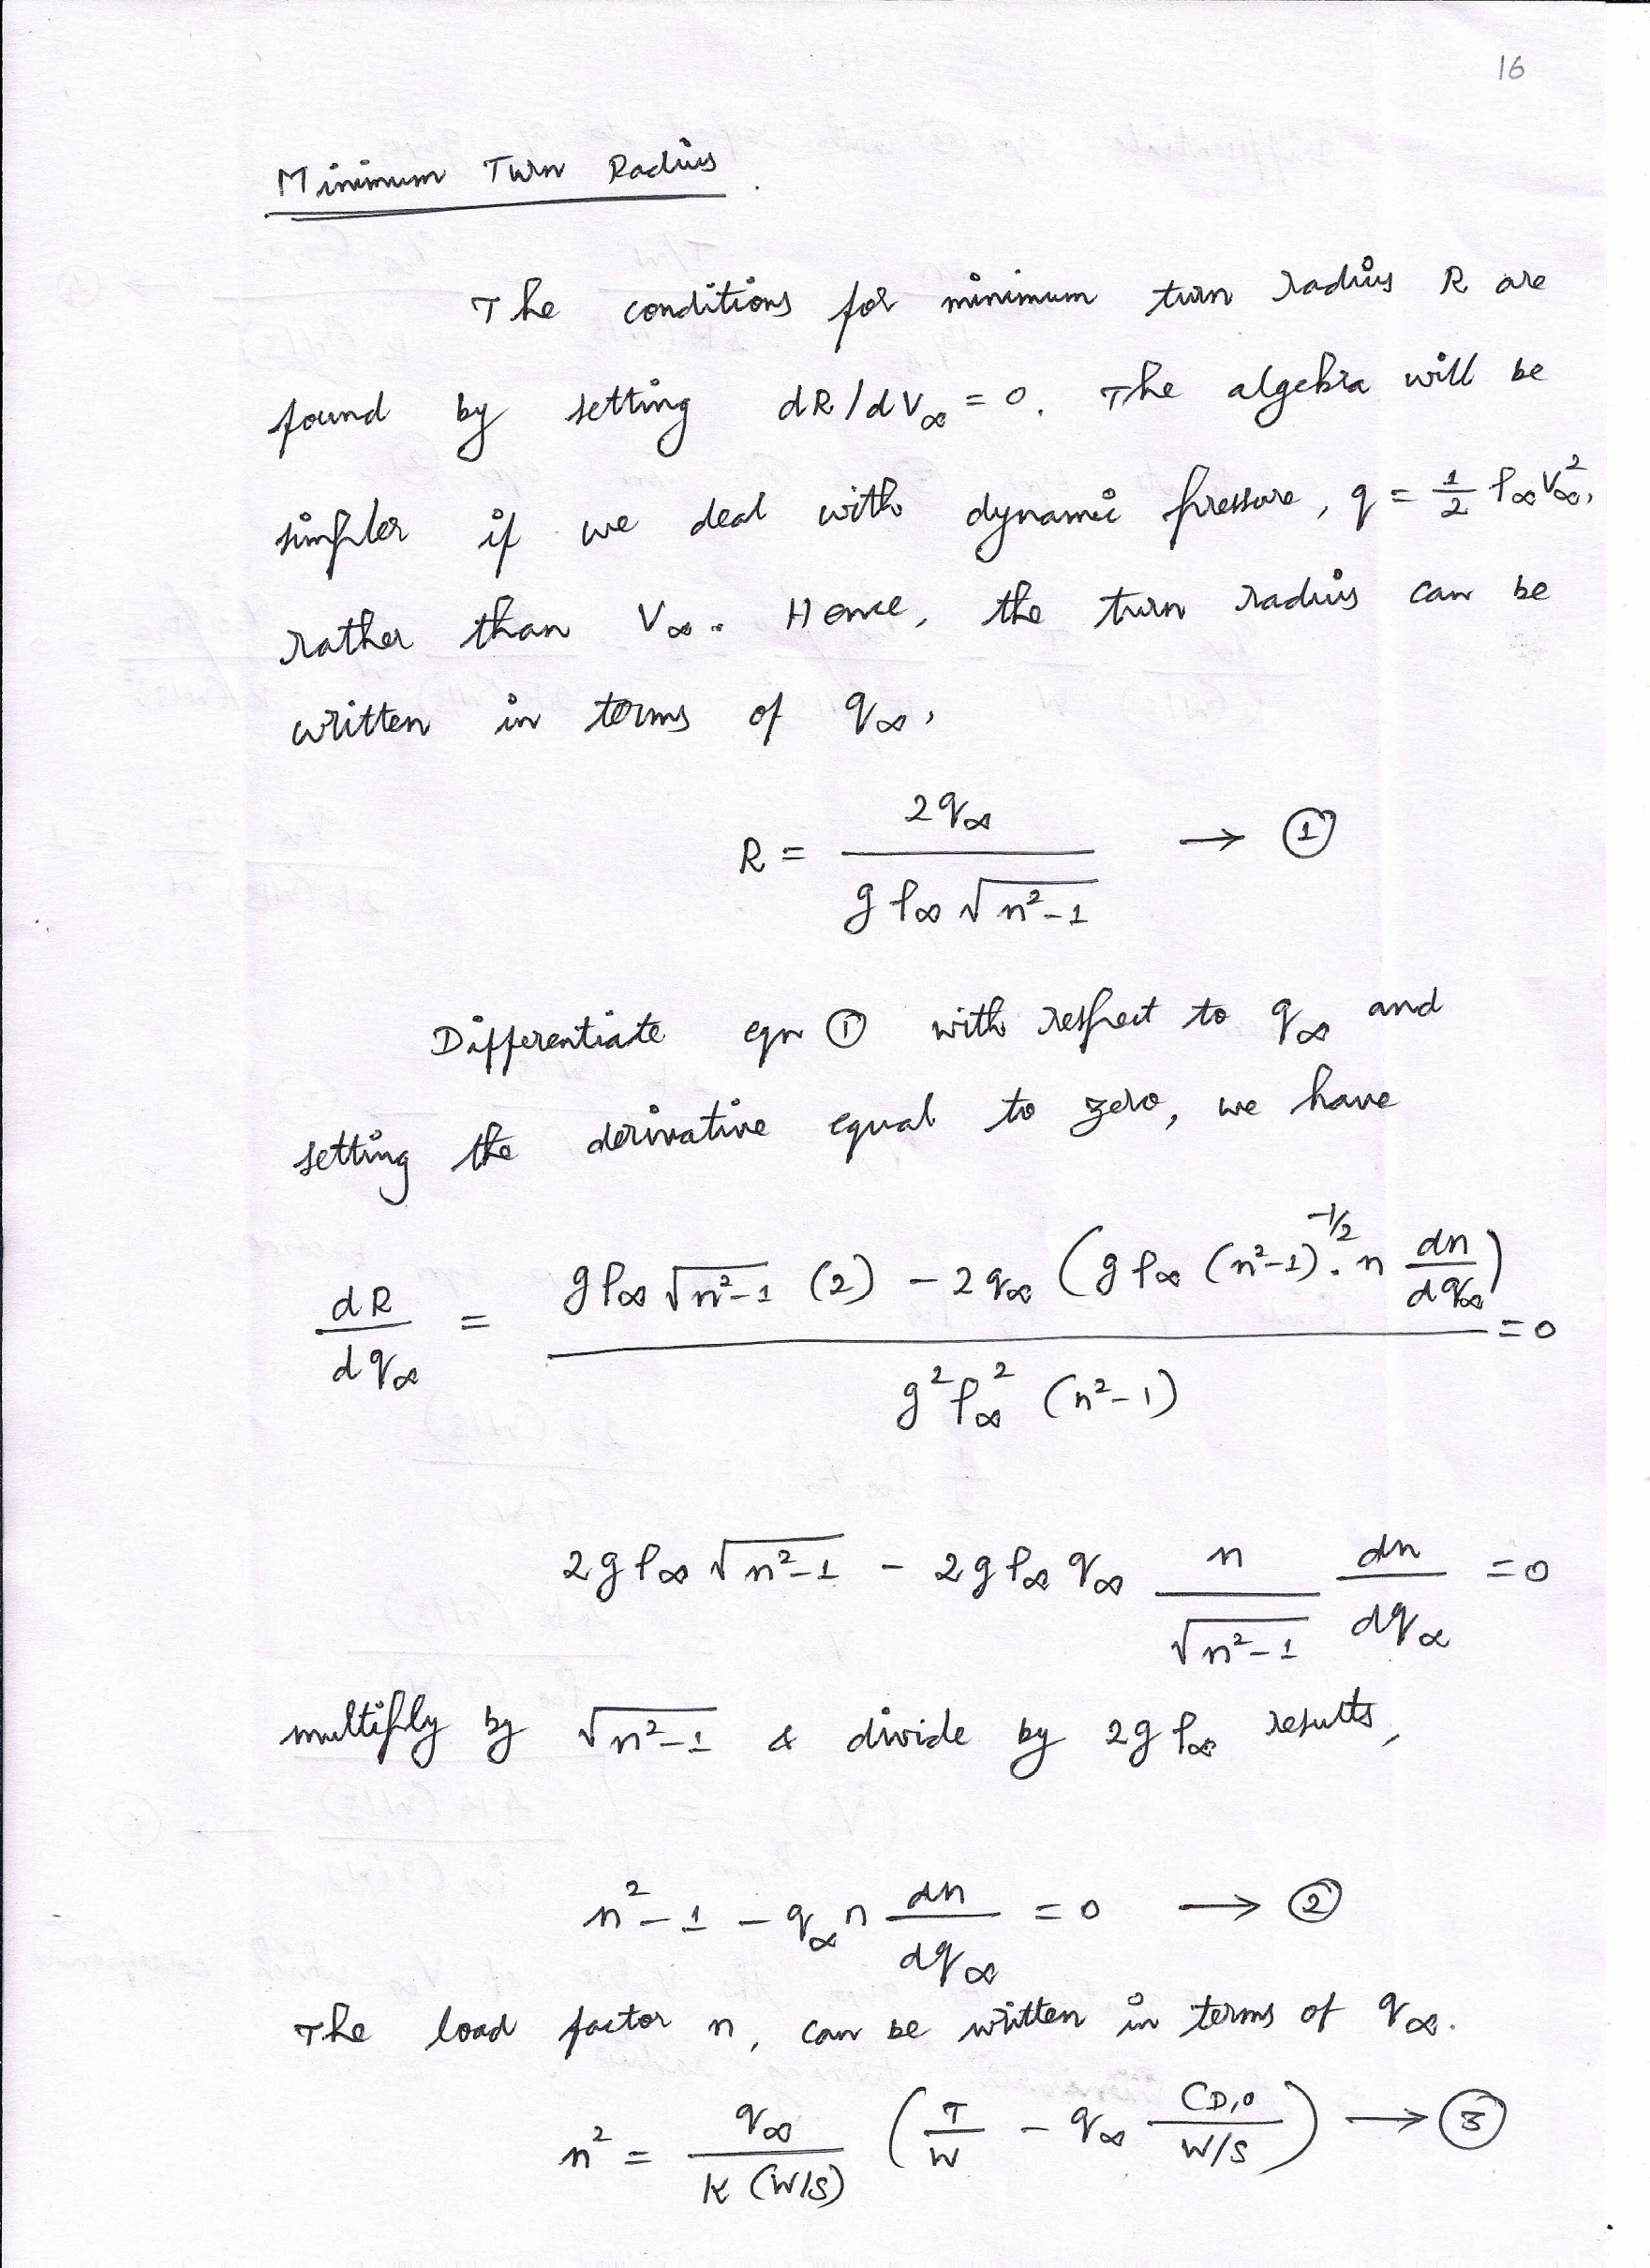 16
Minimum Turn Radius.
The conditions for minimum turn radius R are
found by setting dR/dV∞ = 0. The algebra will be
simpler if we deal with dynamic pressure, q = 1/2 ρ∞V∞²,
rather than V∞. Hence, the turn radius can be
written in terms of q∞,
R = 2q∞ / (g ρ∞ √(n²-1)) → ①
Differentiate eqn ① with respect to q∞ and
setting the derivative equal to zero, we have
dR/dq∞ = [gρ∞ √(n²-1) (2) - 2q∞ (gρ∞ (n²-1)^(-1/2) . n dn/dq∞)] / [g²ρ∞² (n²-1)] = 0
2gρ∞ √(n²-1) - 2gρ∞ q∞ n/√(n²-1) dn/dq∞ = 0
multiply by √(n²-1) & divide by 2gρ∞ results,
n² - 1 - q∞ n dn/dq∞ = 0 → ②
The load factor n, can be written in terms of q∞.
n² = q∞/(K (W/S)) (T/W - q∞ C_D,0/(W/S)) → ③